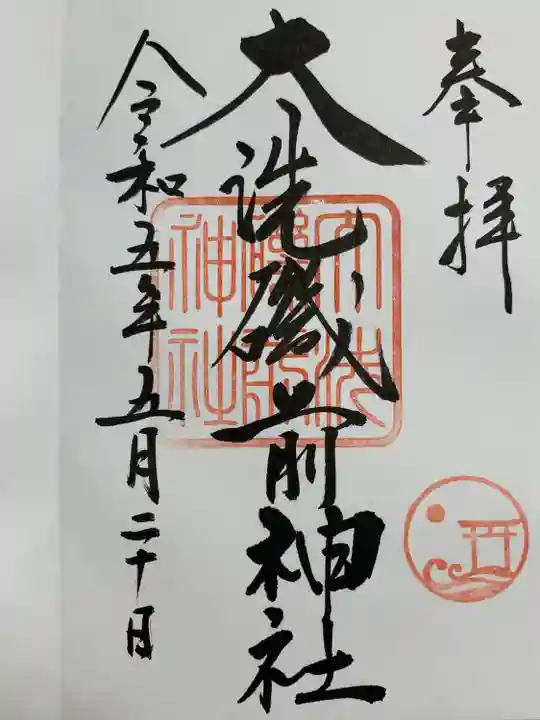 奉拝
大洗磯前神社
大洗
磯前
神社
令和五年五月二十日